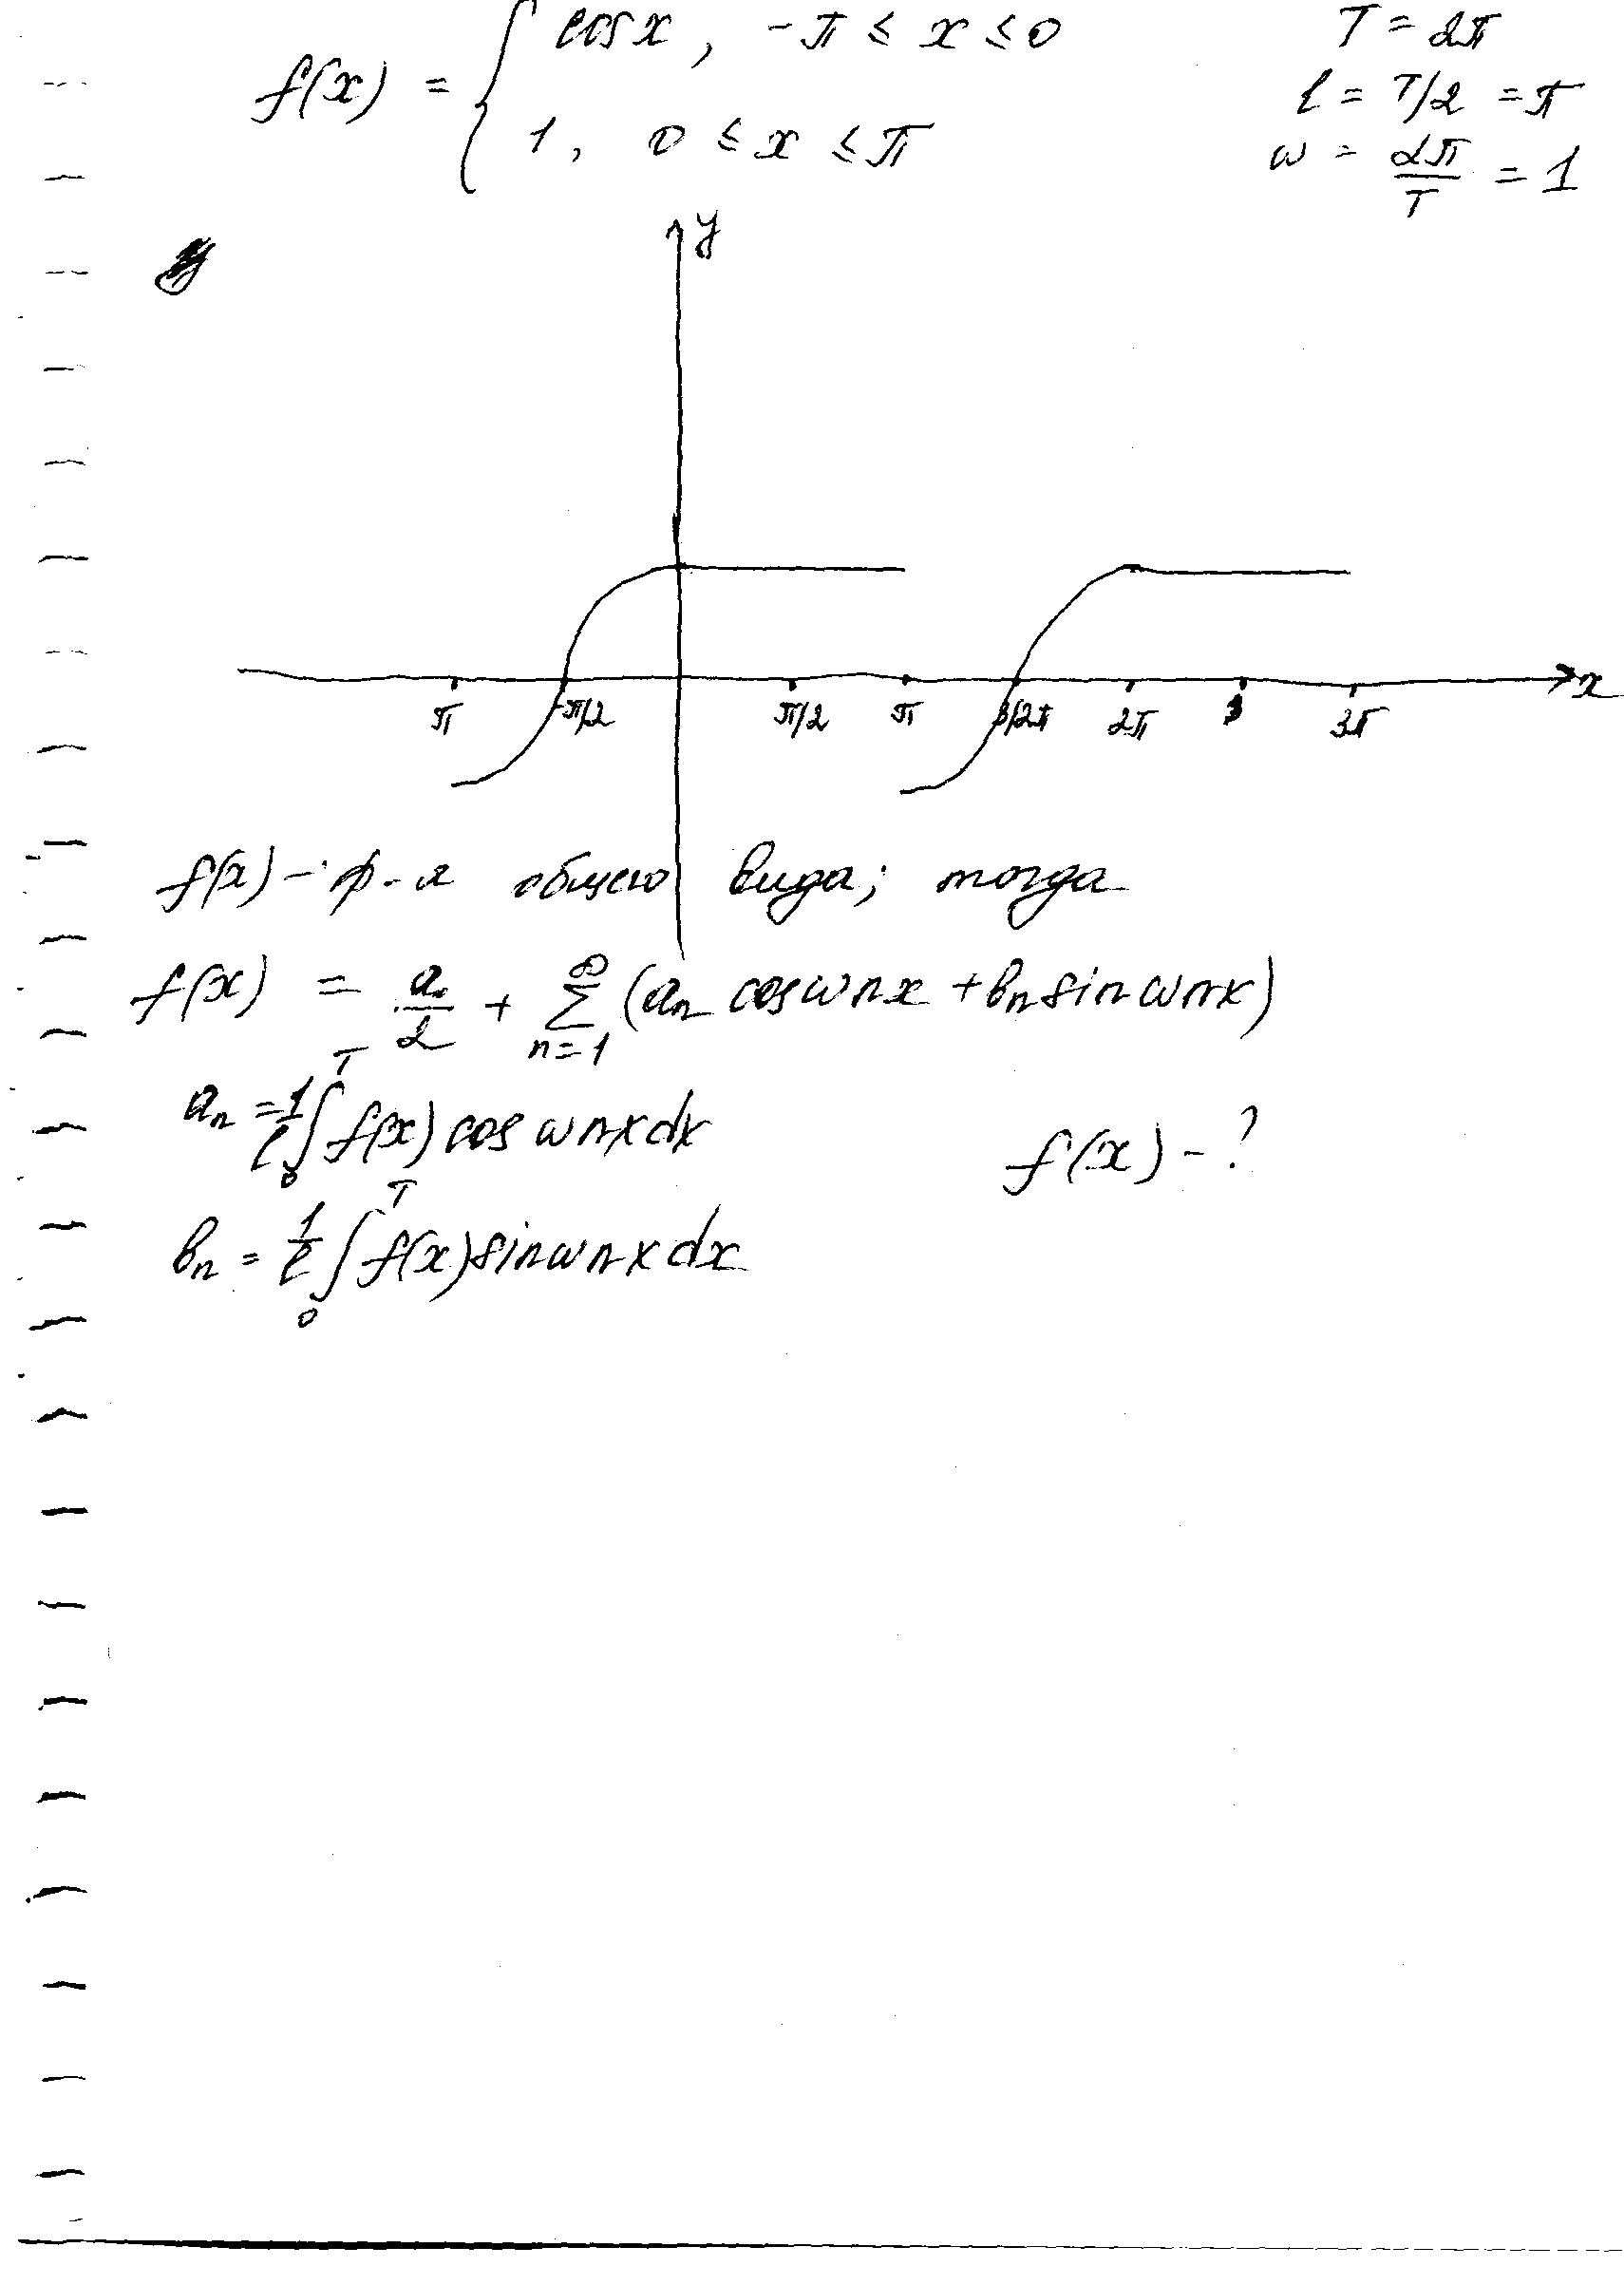 f(x) = { cos x, -π ≤ x ≤ 0
1, 0 ≤ x ≤ π
T = 2π
l = T/2 = π
ω = 2π/T = 1
y
x
π -π/2 π/2 π 3/2π 2π 3 3π
f(x) - ф-я общего вида; тогда
f(x) = a₀/2 + ∑_{n=1}^{∞} (aₙ cos ωnx + bₙ sin ωnx)
aₙ = 1/l ∫₀ᵀ f(x) cos ωnx dx
f(x) - ?
bₙ = 1/l ∫₀ᵀ f(x) sin ωnx dx